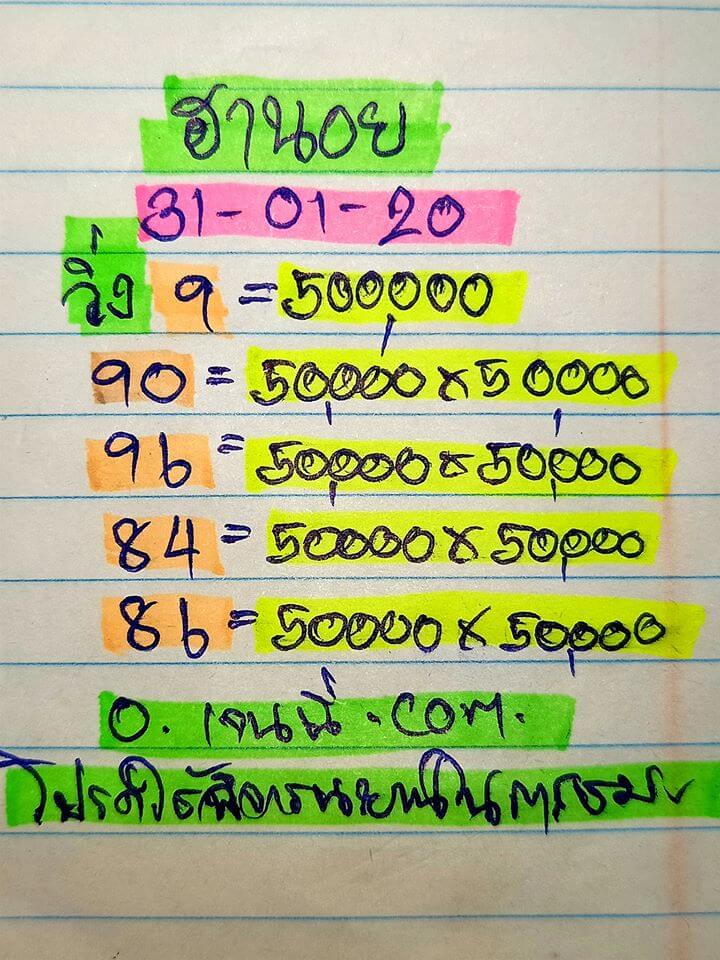 ฮานอย
31-01-20
วิ่ง 9 = 500,000
90 = 50,000 x 50,000
96 = 50,000 x 50,000
84 = 50000 x 50,000
86 = 50000 x 50,000
อ. เจนนี่ .com.
โปรดใช้